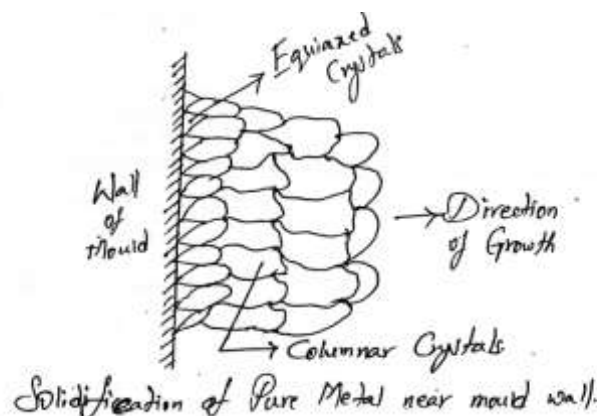 Equiaxed
Crystals
Wall
of
Mould
Direction
of Growth
Columnar Crystals
Solidification of Pure Metal near mould wall.